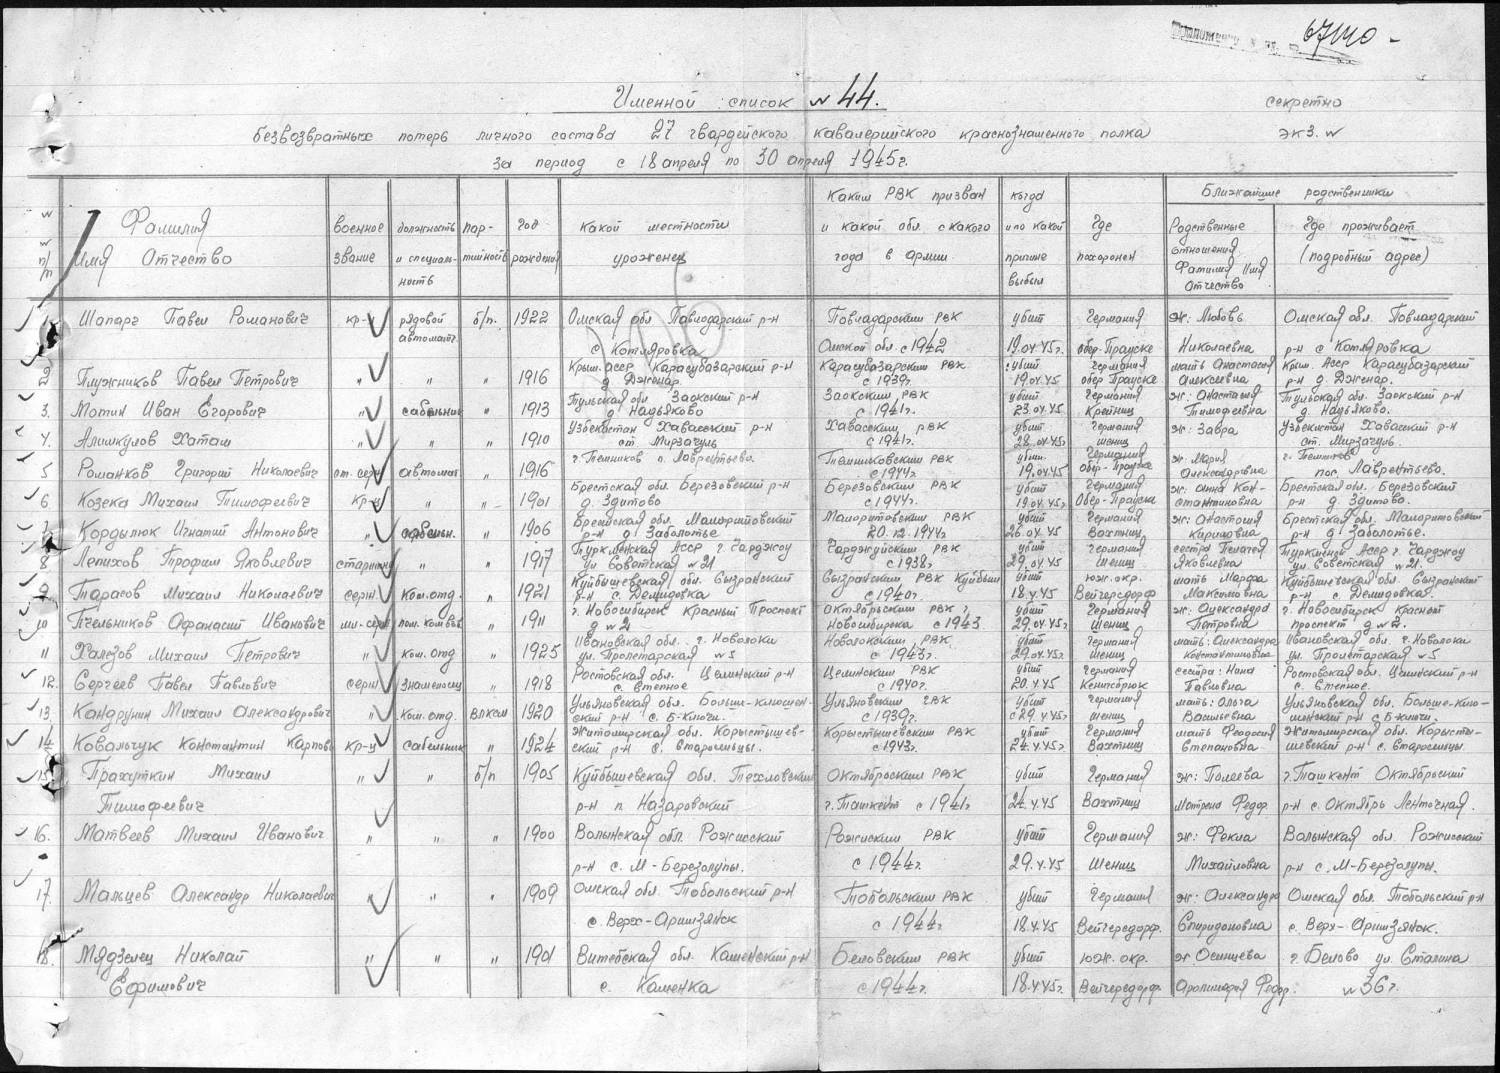 67140 -
Именной список № 44.
секретно
безвозвратных потерь личного состава 27 гвардейского кавалерийского краснознаменного полка
экз. №
за период с 18 апреля по 30 апреля 1945г.
№ № п/п
Фамилия Имя Отчество
военное звание
должность и специальность
партийность
Год рождения
Какой местности уроженец
Каким РВК призван и какой обл. с какого года в армии
когда и по какой причине выбыл
Где похоронен
Ближайшие родственники
Родственные отношения Фамилия Имя Отчество
Где проживает (подробный адрес)
1 Шапарь Павел Романович кр-ц рядовой автомат. б/п. 1922 Омская обл Павлодарский р-н Павладарским РВК убит Германия ж: Любовь Омская обл. Повладарский
с Котляровка Омской обл. с 1942 19.04.45г. обер-Прауске Николаевна р-н с Котляровка
2 Плужников Павел Петрович " " " 1916 Крым. АССР Карасубазарский р-н Карасубазарским РВК убит Германия мать Анастасия Крым. АССР Карасубазарский
д Дженар. с 1939г. 19.04.45 обер Прауске Алексеевна р-н д. Дженар.
3. Мотин Иван Егорович " сабельник " 1913 Тульская обл Заокский р-н Заокским РВК убит Германия ж: Анастасия Тульская обл. Заокский р-н
д. Надьяково с 1941г. 23.04.45 Крейниц Тимофеевна д. Надьяково.
4. Алимкулов Хатам " " " 1910 Узбекистан Хавасский р-н Хавасским РВК убит Германия ж: Завра Узбекистан Хавасский р-н
ст. Мирзачуль с 1941г. 28.04.45г шениц ст. Мирзачуль.
5 Романков Григорий Николаевич ст. серж автомат " 1916 г. Темников п. Лаврентьево. Темниковским РВК убит Германия ж. Мария г. Темников
с 1944г. 19.04.45 обер-Прауска Александровна пос Лаврентьево.
6 Козека Михаил Тимофеевич кр-ц " " 1901 Брестская обл. Березовский р-н Березовским РВК убит Германия ж: Анна Кон- Брестская обл. Березовский
д. Здитово с 1944г. 19.04.45г Обер-Прауске стантиновна р-н д. Здитово.
7 Кордылюк Игнатий Антонович " сабельн. " 1906 Брестская обл. Малоритовский Малоритовским РВК убит Германия ж: Анастасия Брестская обл. Малоритовский
р-н д Заболотье 20.12.1944г. 26.04.45 Вахтниц Кириловна р-н д. Заболотье.
8 Лепихов Трофим Яковлевич старшина " " 1917 Туркменская АССР г. Чарджоу Чарджуйским РВК убит Германия сестра Пелагея Туркменск АССР г Чарджоу
ул Советская №21 с 1938г. 29.04.45 Шениц Яковлевна ул. Советская №21.
9 Тарасов Михаил Николаевич серж ком.отд. " 1921 Куйбышевская обл. Сызранский Сызранским РВК Куйбыш убит юж. окр. мать Марфа Куйбышевская обл. Сызранский
р-н с. Демидовка с 1940г. 18.4.45 Вейгерсдорф Максимовна р-н с. Демидовка.
10 Пчельников Афанасий Иванович мл-серж пом. ком.взв " 1911 г. Новосибирск Красный Проспект Октябрьским РВК г. убит Германия ж: Александра г. Новосибирск Красный
д №2 Новосибирска с 1943 29.04.45г Шениц Петровна проспект д №2.
11 Халезов Михаил Петрович " ком. отд " 1925 Ивановская обл. г. Наволоки Наволокским РВК убит Германия мать: Александра Ивановская обл. г. Наволоки
ул. Пролетарская №5 с 1943г. 29.04.45г Шениц Константиновна ул. Пролетарская №5
12. Сергеев Павел Павлович серж Знаменосец " 1918 Ростовская обл. Целинский р-н Целинским РВК убит Германия сестра: Нина Ростовская обл. Целинский р-н
с. Степное с 1940г. 20.4.45 Кенигсбрюк Павловна с. Степное.
13. Кандрунин Михаил Александрович " Ком. отд. ВЛКСМ 1920 Ульяновская обл. Больше-ключен- Ульяновским ГВК убит Германия мать: Ольга Ульяновская обл. Больше-клю-
ский р-н с. Б-ключи. с 1939г. с 29.4.45г шениц Васильевна ченский р-н с Б-ключи.
14 Ковальчук Константин Карпов кр-ц сабельник " 1924 Житомирская обл. Коростышев- Коростышевским РВК убит Германия мать Феодосия Житомирская обл. Корысты-
ский р-н с. Старосельцы. с 1943г. 24.4.45г Вахтниц Степановна шевский р-н с. Старосельцы.
15 Прахуткин Михаил " " б/п 1905 Куйбышевская обл. Техловский Октябрьским РВК убит Германия ж: Полеева г. Ташкент Октябрьский
Тимофеевич р-н п. Назаровский г. Ташкент с 1941г. 24.4.45 Вахтниц Матрена Федор р-н с. Октябрь Ленточная.
16. Матвеев Михаил Иванович " " " 1900 Волынская обл. Рожисский Рожиским РВК убит Германия ж: Фекла Волынская обл. Рожисский
р-н с. М-Березолупы. с 1944г. 29.4.45 Шениц Михайловна р-н с. М-Березолупы.
17. Мальцев Александр Николаевич " " " 1909 Омская обл. Тобольский р-н Тобольским РВК убит Германия ж: Александра Омская обл. Тобольский р-н
с. Верх-Аришзянск с 1944г. 18.4.45 Вейгередорф. Спиридоновна с. Верх-Аришзянск.
18. Мядзелец Николай " " " 1901 Витебская обл. Каменский р-н Беловским РВК убит юж. окр. ж. Осинцева г. Белово ул. Сталина
Ефимович с. Каменка с 1944г. 18.4.45г. Вейгередорф. Федор. №36г.